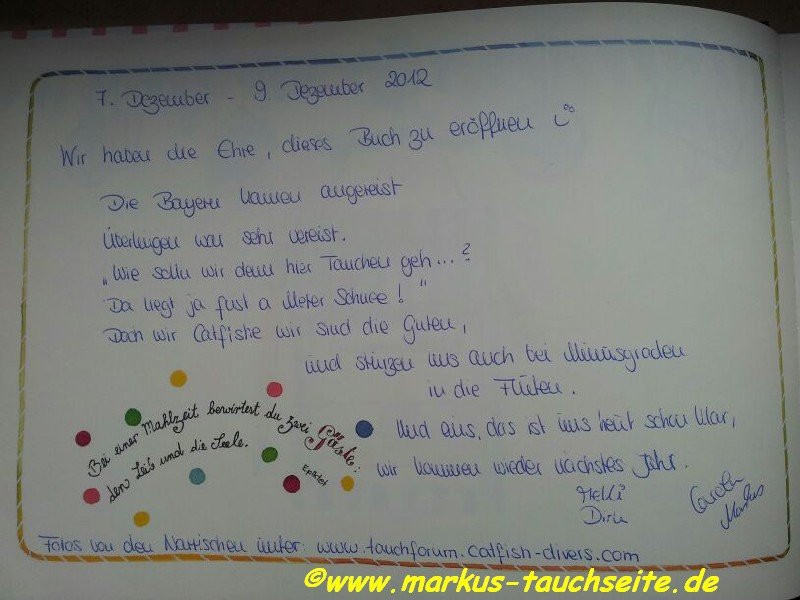 7. Dezember - 9. Dezember 2012
Wir haben die Ehre, dieses Buch zu eröffnen
Die Bayern kamen angereist
Überlingen war sehr vereist.
„Wie solln wir denn hier Tauchen geh...?
Da liegt ja fast a Meter Schnee!"
Doch wir Catfishe wir sind die Guten,
und stürzen uns auch bei Minusgraden
in die Fluten.
Und eins, das ist uns heut schon klar,
wir kommen wieder nächstes Jahr.
Melli
Dirk
Carolin
Markus
Bei einer Mahlzeit bewirtest du zwei Gäste:
den Leib und die Seele.
Epiktet
Fotos von den Närrischen unter: www.tauchforum.catfish-divers.com
©www.markus-tauchseite.de